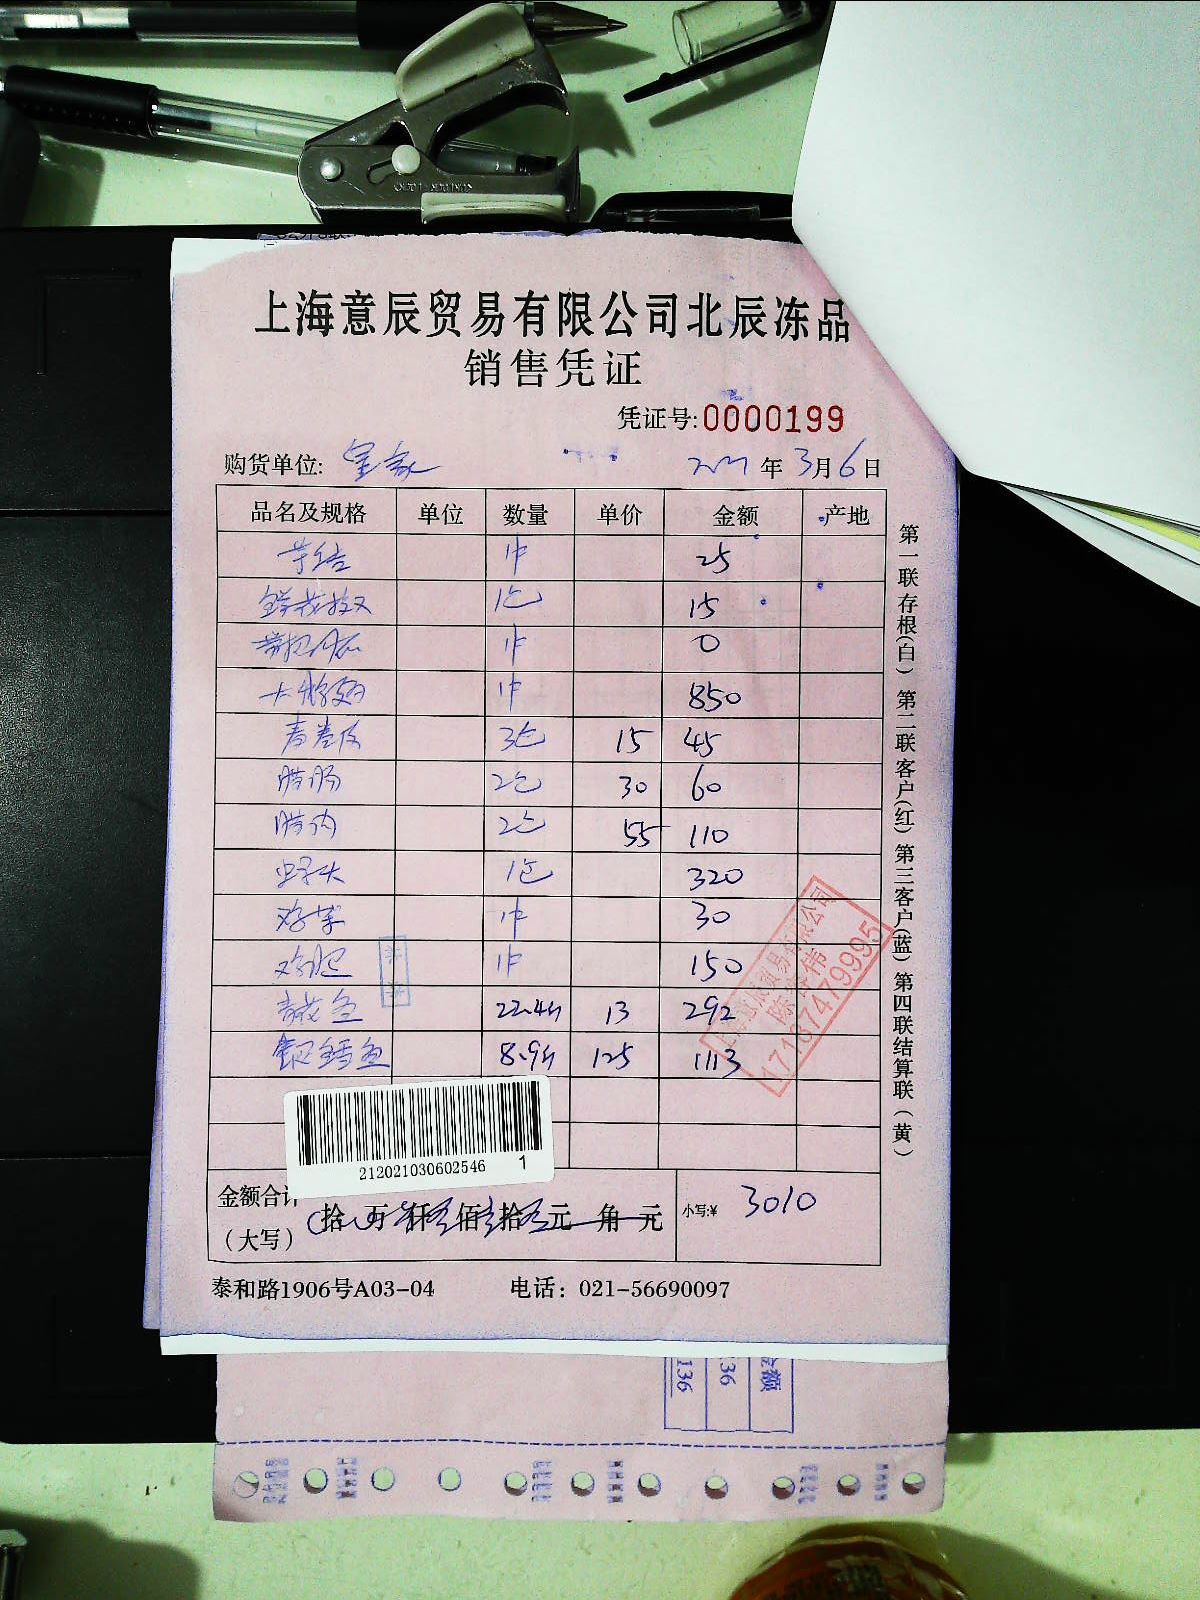 上海意辰贸易有限公司北辰冻品
销售凭证
凭证号:0000199
购货单位: 年3月6日
品名及规格 单位 数量 单价 金额 产地
1件 25
1包 15
1件 0
1件 850
春卷皮 3包 15 45
腊肠 2包 30 60
腊肉 2包 55 110
1包 320
1件 30
鸡肥 1件 150
青花鱼 22.4斤 13 292
银鳕鱼 8.9斤 125 1113
212021030602546 1
金额合计
(大写) 拾 万 仟 佰 拾 元 角 元 小写:¥ 3010
泰和路1906号A03-04 电话: 021-56690097
第一联存根(白) 第二联客户(红) 第三客户(蓝) 第四联结算联(黄)
17187479995
金额
36
136